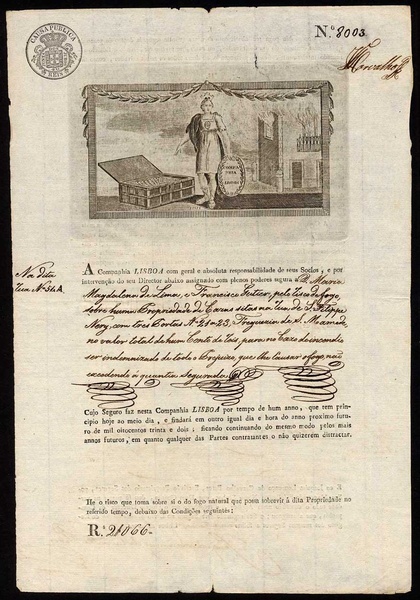 CAUSA PUBLICA
REIS
N.º 8003
COMPA
NHIA
LISBOA
A Companhia LISBOA com geral e absoluta responsabilidade de seus Socios, e por
intervenção do seu Director abaixo assignado com plenos poderes segura a D. Maria
Magdalena de Lima, e Francisco, pelo risco de fogo,
sobre huma Propriedade de Cazas sitas na Rua de S. Filippe
Nery, com tres Portas Nº 21 a 23, Freguezia de S. Mamede
no valor total de hum Conto de reis, para no Cazo de incendio
ser indemnizado de todo o Prejuizo, que lhe cauzar o fogo, não
excedendo á quantia Segurada
Cujo Seguro faz nesta Companhia LISBOA por tempo de hum anno, que tem prin-
cipio hoje ao meio dia, e findará em outro igual dia e hora do anno proximo fu-
turo de mil oitocentos trinta e dois; ficando continuando do mesmo modo pelos mais
annos futuros, em quanto qualquer das Partes contractantes o não quizerem distractar.
He o risco que toma sobre si o do fogo natural que possa sobrevir á dita Propriedade no
referido tempo, debaixo das Condições seguintes: